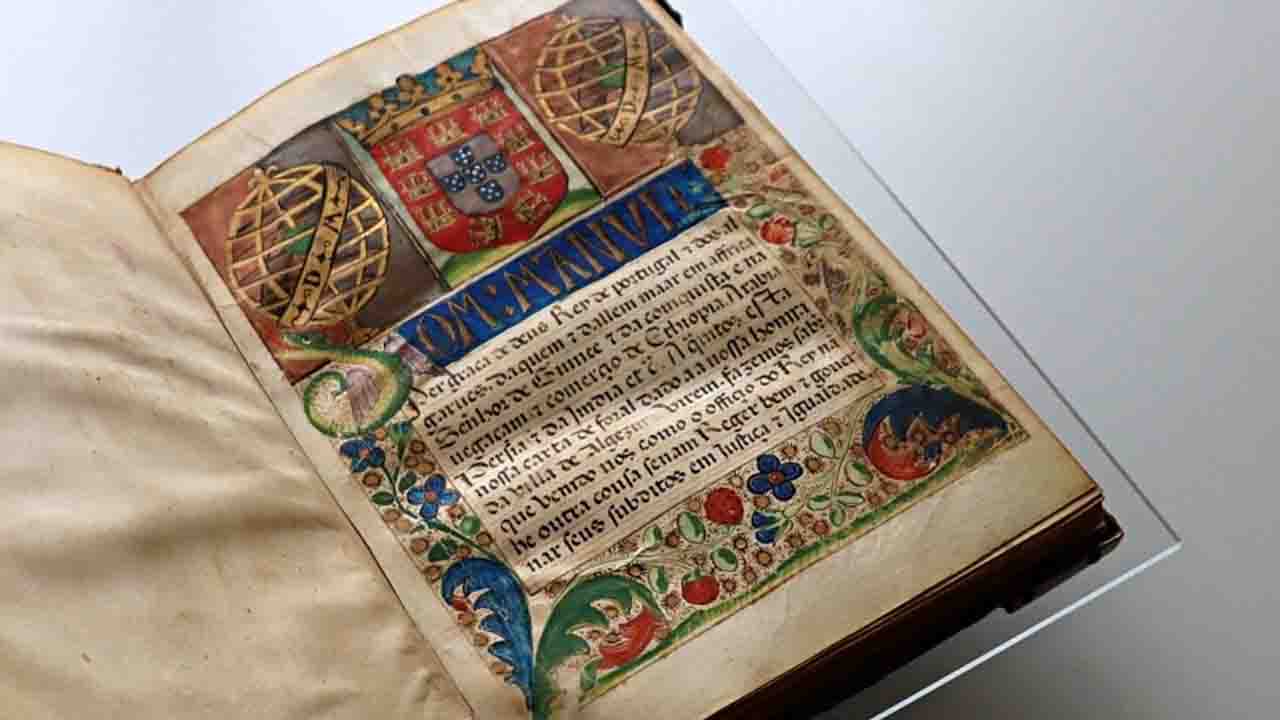 OM: MANVEL
Per graca de deus Rey de portugal ⁊ dos al
garues, daquem ⁊ dallem maar em affrica
Senhor de Guinee ⁊ da comquista ⁊ na
uegacam ⁊ comercio de Ethiopia. Arabia
Persia ⁊ da India
nossa carta de foral dado a a nossa
da Villa de Algezur Virem. fazemos saber
que vemdo nos como o officio do Rey nã
he outra cousa senam Reger bem ⁊ gouer
nar seus subditos em Justiça ⁊ Igualdade